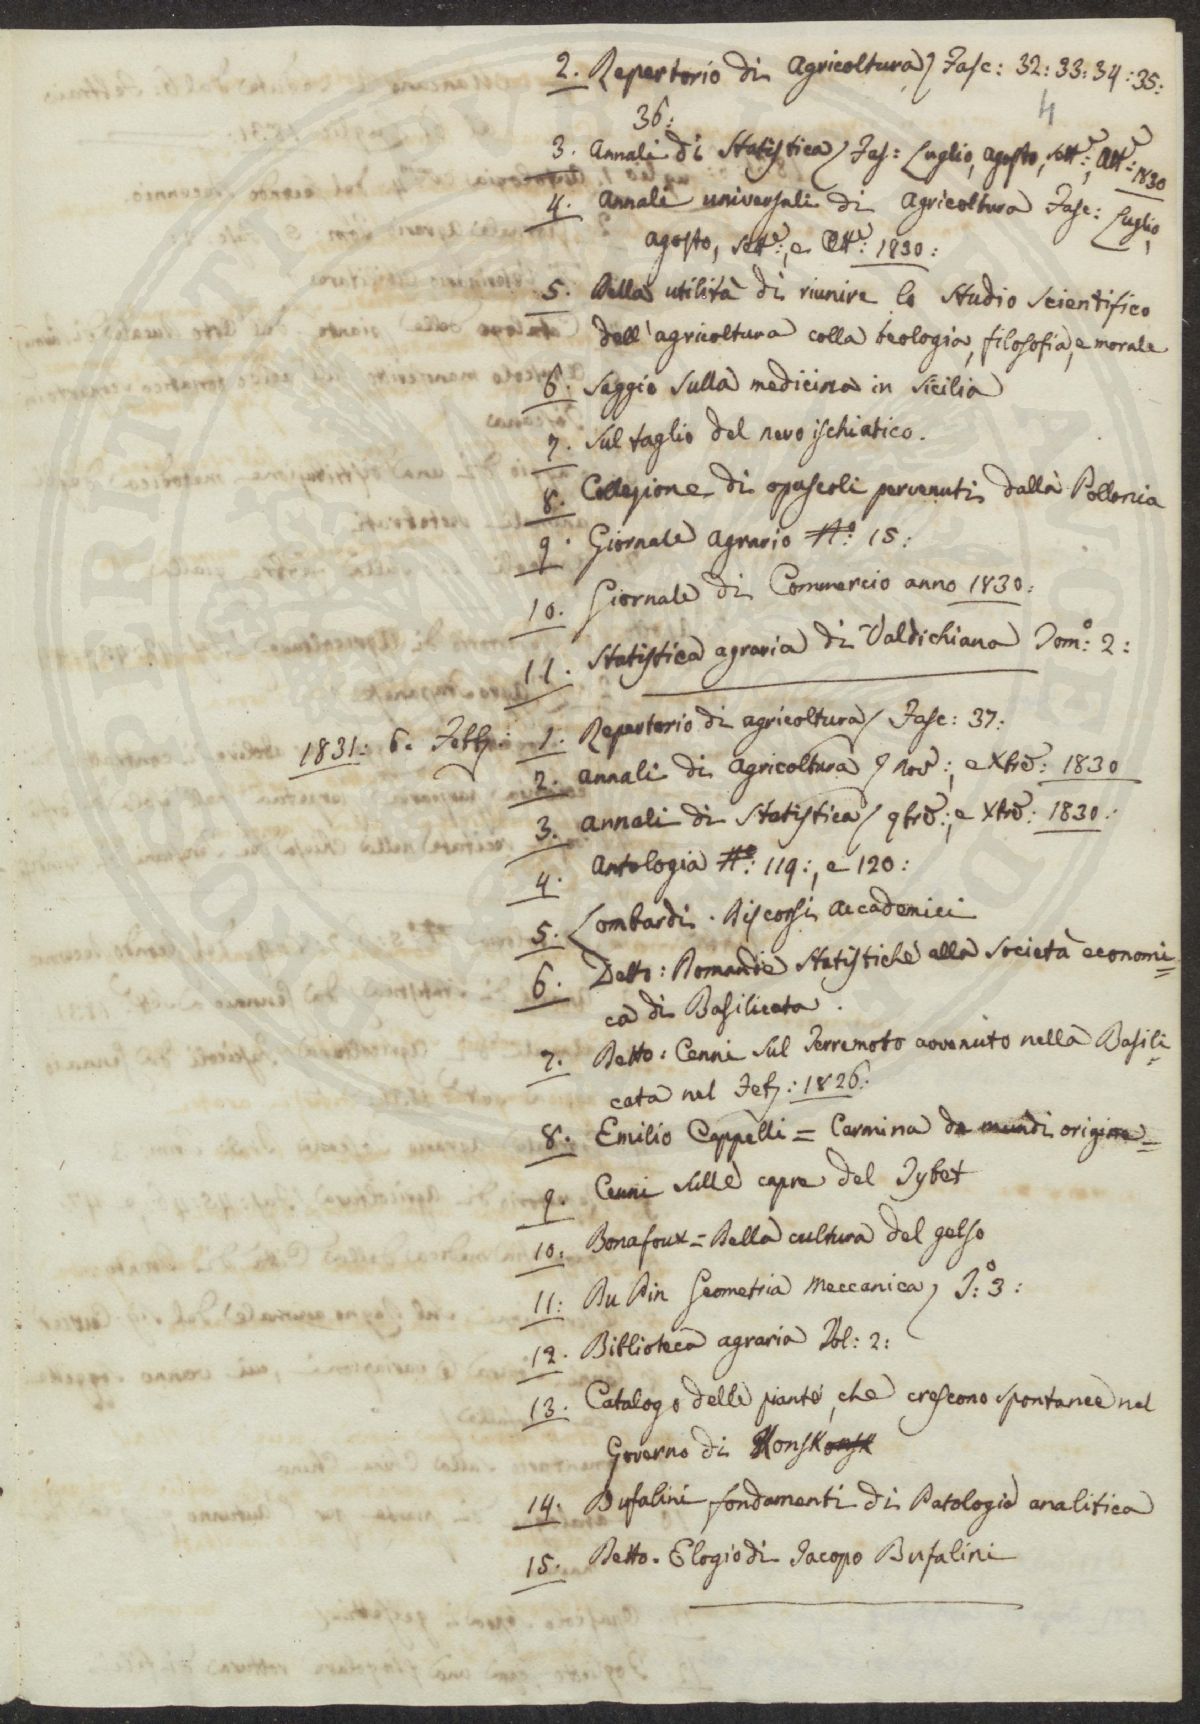 2. Repertorio di Agricoltura / Fasc: 32: 33: 34: 35:
4
36:
3. Annali di Statistica / Fas: Luglio, Agosto, Sett.e:, Ott.e: 1830
4. Annali universali di Agricoltura Fasc: Luglio,
Agosto, Sett.e:, e Ott.e: 1830:
5. Della utilità di riunire lo Studio Scientifico
dell'agricoltura colla teologia, filosofia, e morale
6. Saggio Sulla medicina in Sicilia
7. Sul taglio del nervo ischiatico.
8. Collezione di opuscoli pervenuti dalla Pollonia
9. Giornale Agrario N.o: 15:
10. Giornale di Commercio anno 1830:
11. Statistica agraria di Valdichiana Tom.o: 2:
1831: 6. Febb: 1. Repertorio di agricoltura / Fasc: 37:
2. Annali di Agricoltura / Nov.e:, e Xbre: 1830
3. Annali di Statistica / 9bre:, e Xbre: 1830:
4. Antologia N.o: 119:, e 120:
5. Lombardi. Discorsi Accademici
6. Detto: Domande Statistiche alla Società economi=
ca di Basilicata.
7. Detto: Cenni Sul Terremoto avvenuto nella Basili=
cata nel Feb: 1826:
8. Emilio Cappelli = Carmina de mundi origine=
9. Cenni Sulle capre del Tybet
10: Bonafoux = Della cultura del gelso
11: Du Pin Geometria Meccanica / T.o: 3:
12. Biblioteca agraria Vol: 2:
13. Catalogo delle piante, che crescono spontanee nel
Governo di Konsk
14. Bufalini fondamenti di Patologia analitica
15. Detto. Elogio di Jacopo Bufalini